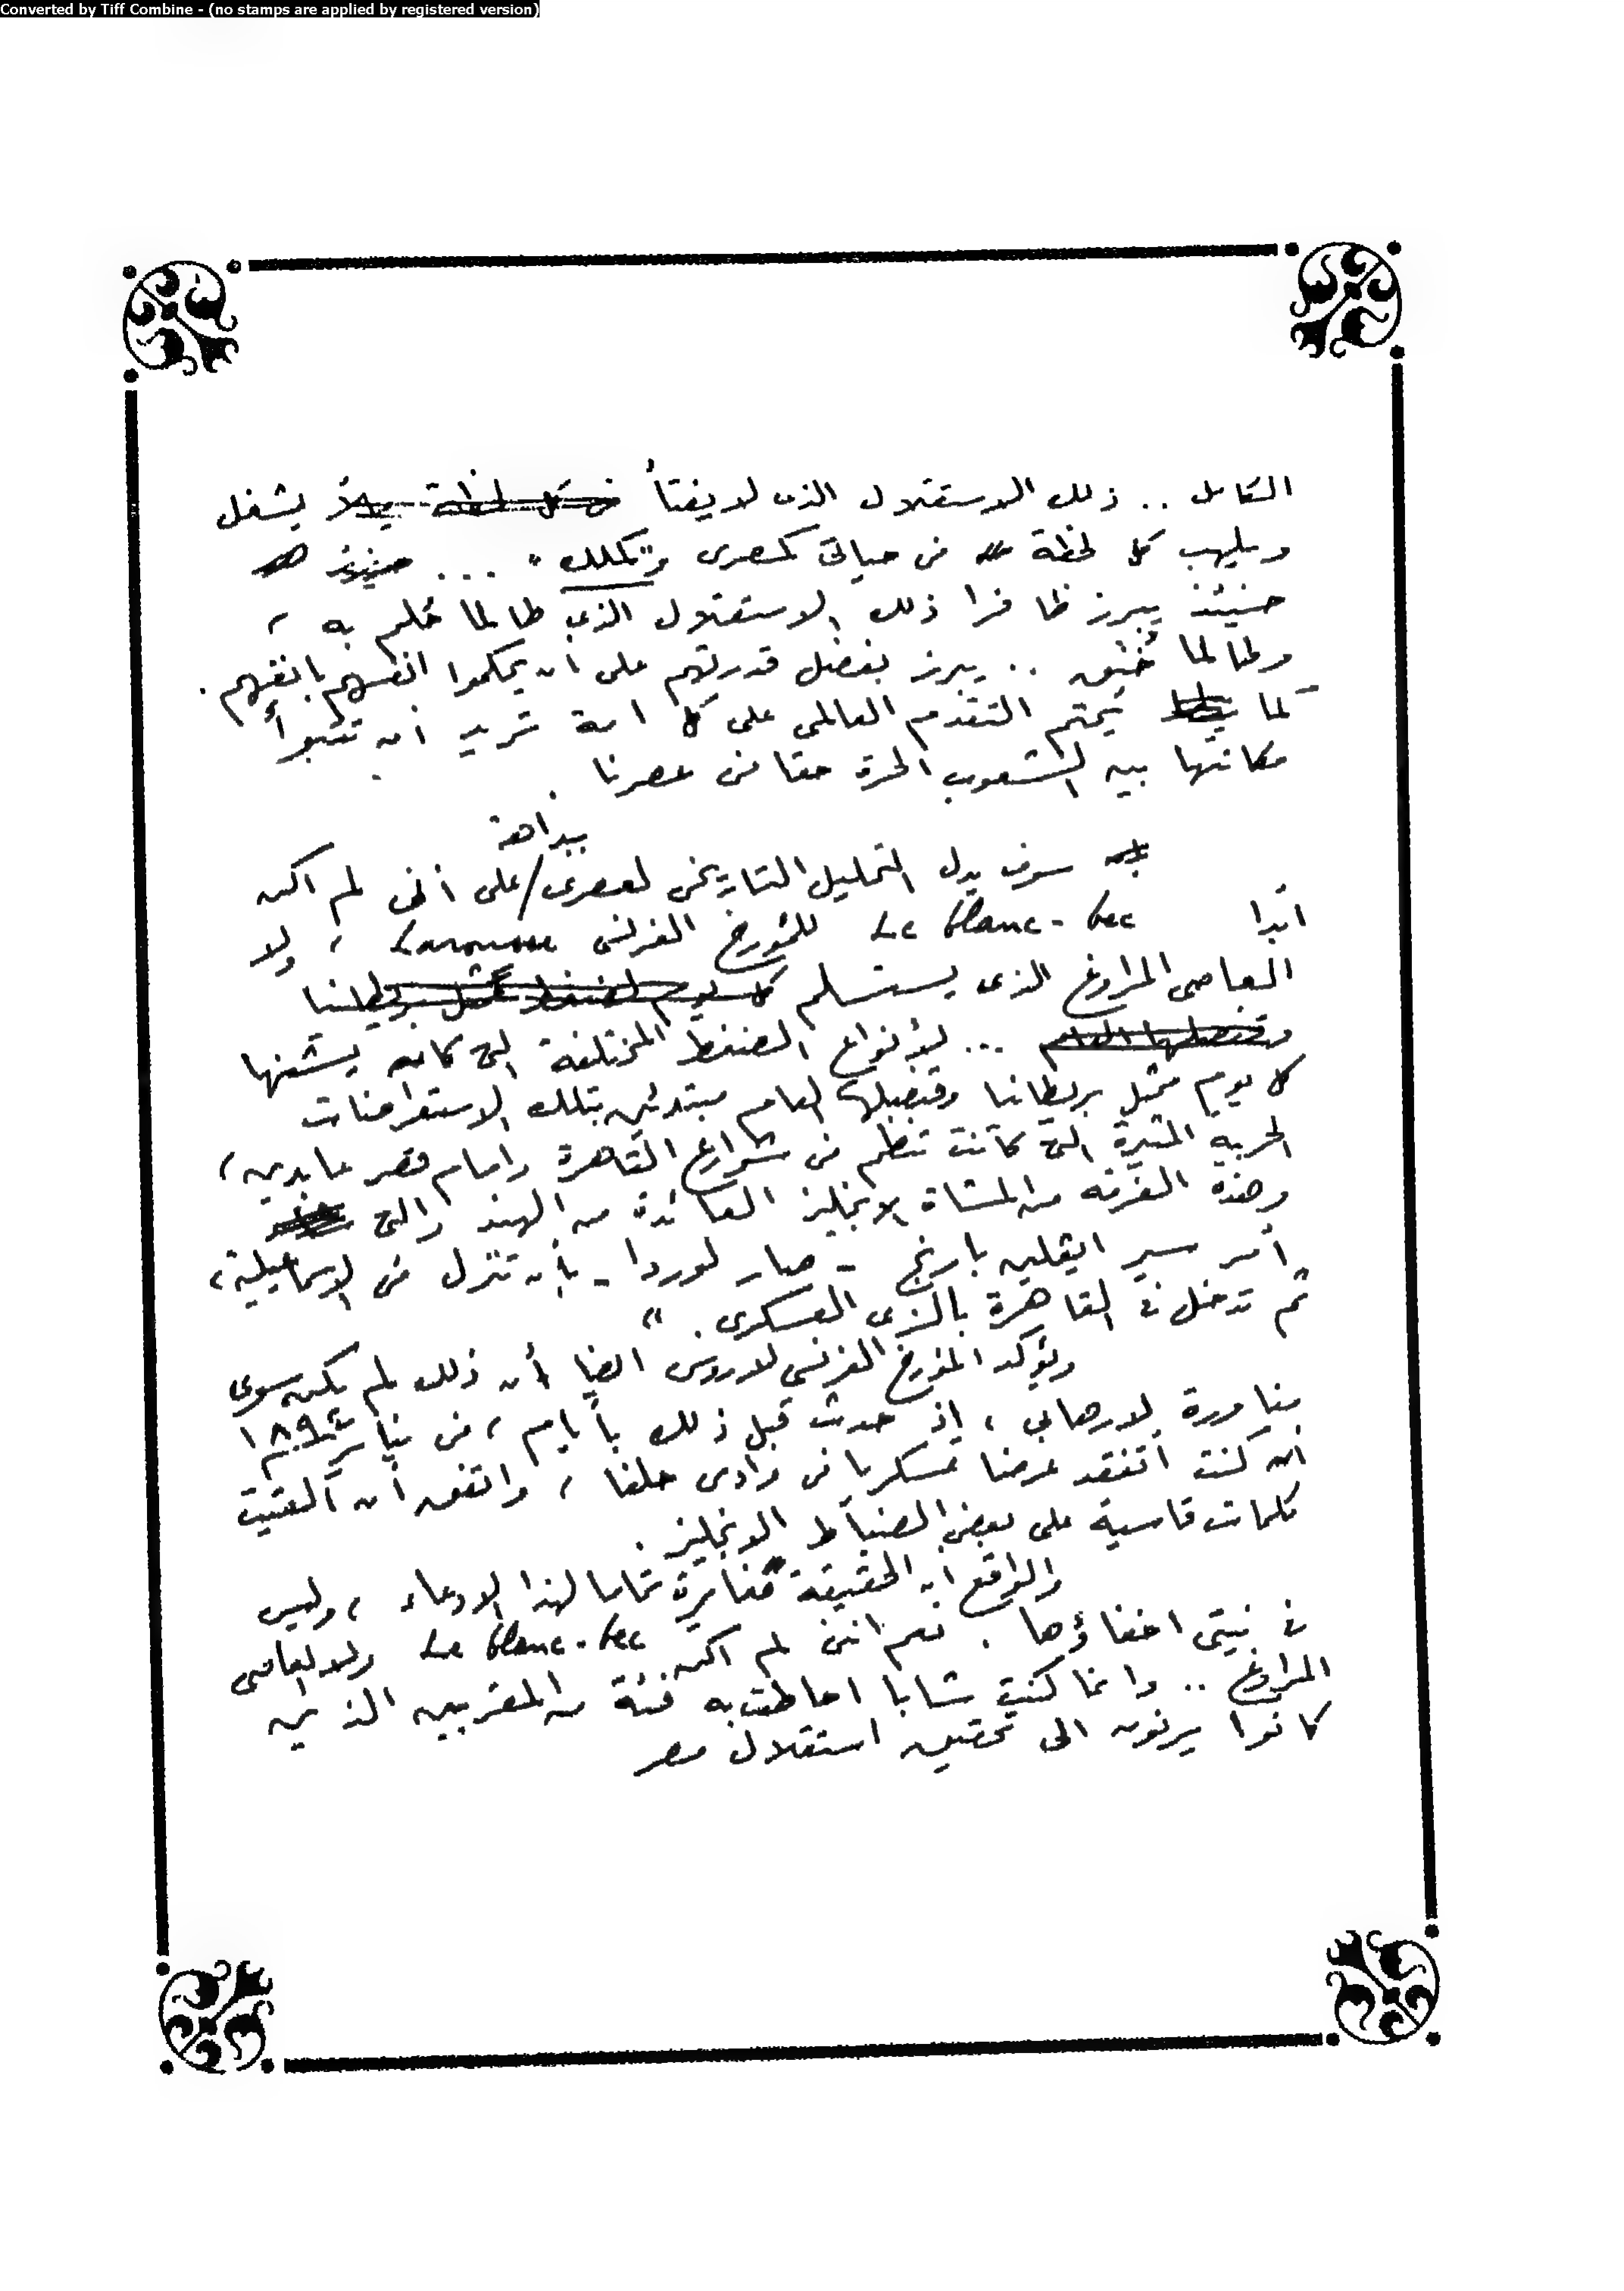 Converted by Tiff Combine - (no stamps are applied by registered version)
الكامل .. ذلك الاستقلال الذى لا يفتأ يشغل
ويلهب كل لحظة من حياتى كمصرى و"كملك" ... حينئذ
حينئذ يبرز ظافرا ذلك الاستقلال الذى طالما حُلم به ،
ولطالما خُنق .. يبرز بفضل قدرتهم على ان يحكموا انفسهم بانفسهم .
كما يحتم التقدم العالمى على كل امة تريد ان تتبوأ
مكانتها بين الشعوب الحرة حقا فى عصرنا .
بداهة
سوف يدل التحليل التاريخى لعصرى / على أنى لم اكن
ابدا Le blanc-bec للمؤرخ الفرنسى Larousse ، ولا
العاصى المراوغ الذى يستسلم كل يوم لضغط ممثل بريطانيا
وقنصلها العام ... لأنواع الضغط المختلفة التى كان يشنها
كل يوم ممثل بريطانيا وقنصلها العام مبتدئين بتلك الاستعراضات
الحربية المثيرة التى كانت تنظم فى شوارع القاهرة وامام قصر عابدين ،
وهذه الفرقة من المشاة الانجليز العائدة من الهند والتى
أمر سير ايفلين بارنج - صار لوردا - بأن تنزل فى الاسماعيلية ،
ثم تدخل فى القاهرة بالزى العسكرى . "
ويؤكد المؤرخ الفرنسى لاروس ايضا أن ذلك لم يكن سوى
مناورة لارهابى ، إذ حدث قبل ذلك بأيام ، فى يناير
ان كنت أتفقد عرضا عسكريا فى وادى حلفا ، واتفق أن ألقيت
كلمات قاسية على بعض الضباط الانجليز .
والواقع ان الحقيقة مغايرة تماما لهذا الادعاء ، وليس
فى نيتى اخفاؤها . نعم اننى لم اكن Le blanc-bec ولا العاصى
المراوغ .. وانما كنت شابا احاطت به فئة من المقربين الذين
كانوا يرنون الى تحقيق استقلال مصر